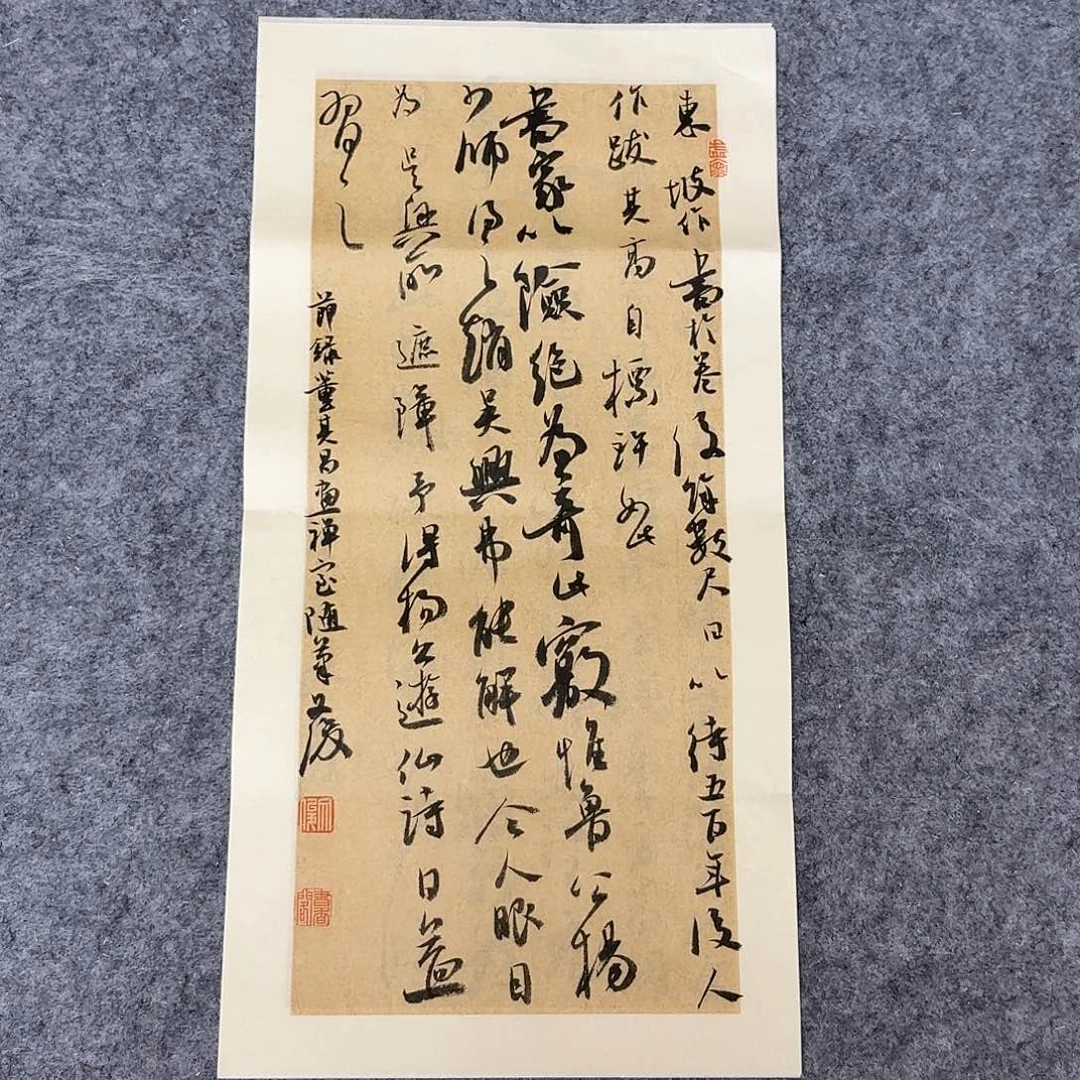 東坡作書於卷後餘數尺曰以待五百年後人
作跋其高自標許如此
書家以險絕為奇此竅惟魯公楊
少師得之趙吳興弗能解也今人眼目
為吳興所遮障予得楊公遊仙詩日益
習之
節錄董其昌畫禪室隨筆